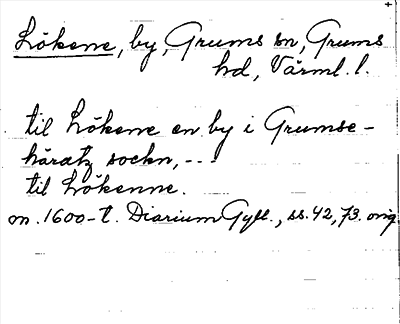 Lökene, by, Grums sn, Grums
hd, Värml. l.
til Lökene en by i Grumse-
häratz sockn, ---
til Lökenne.
m. 1600-t. Diarium Gyll., ss. 42, 73. orig.